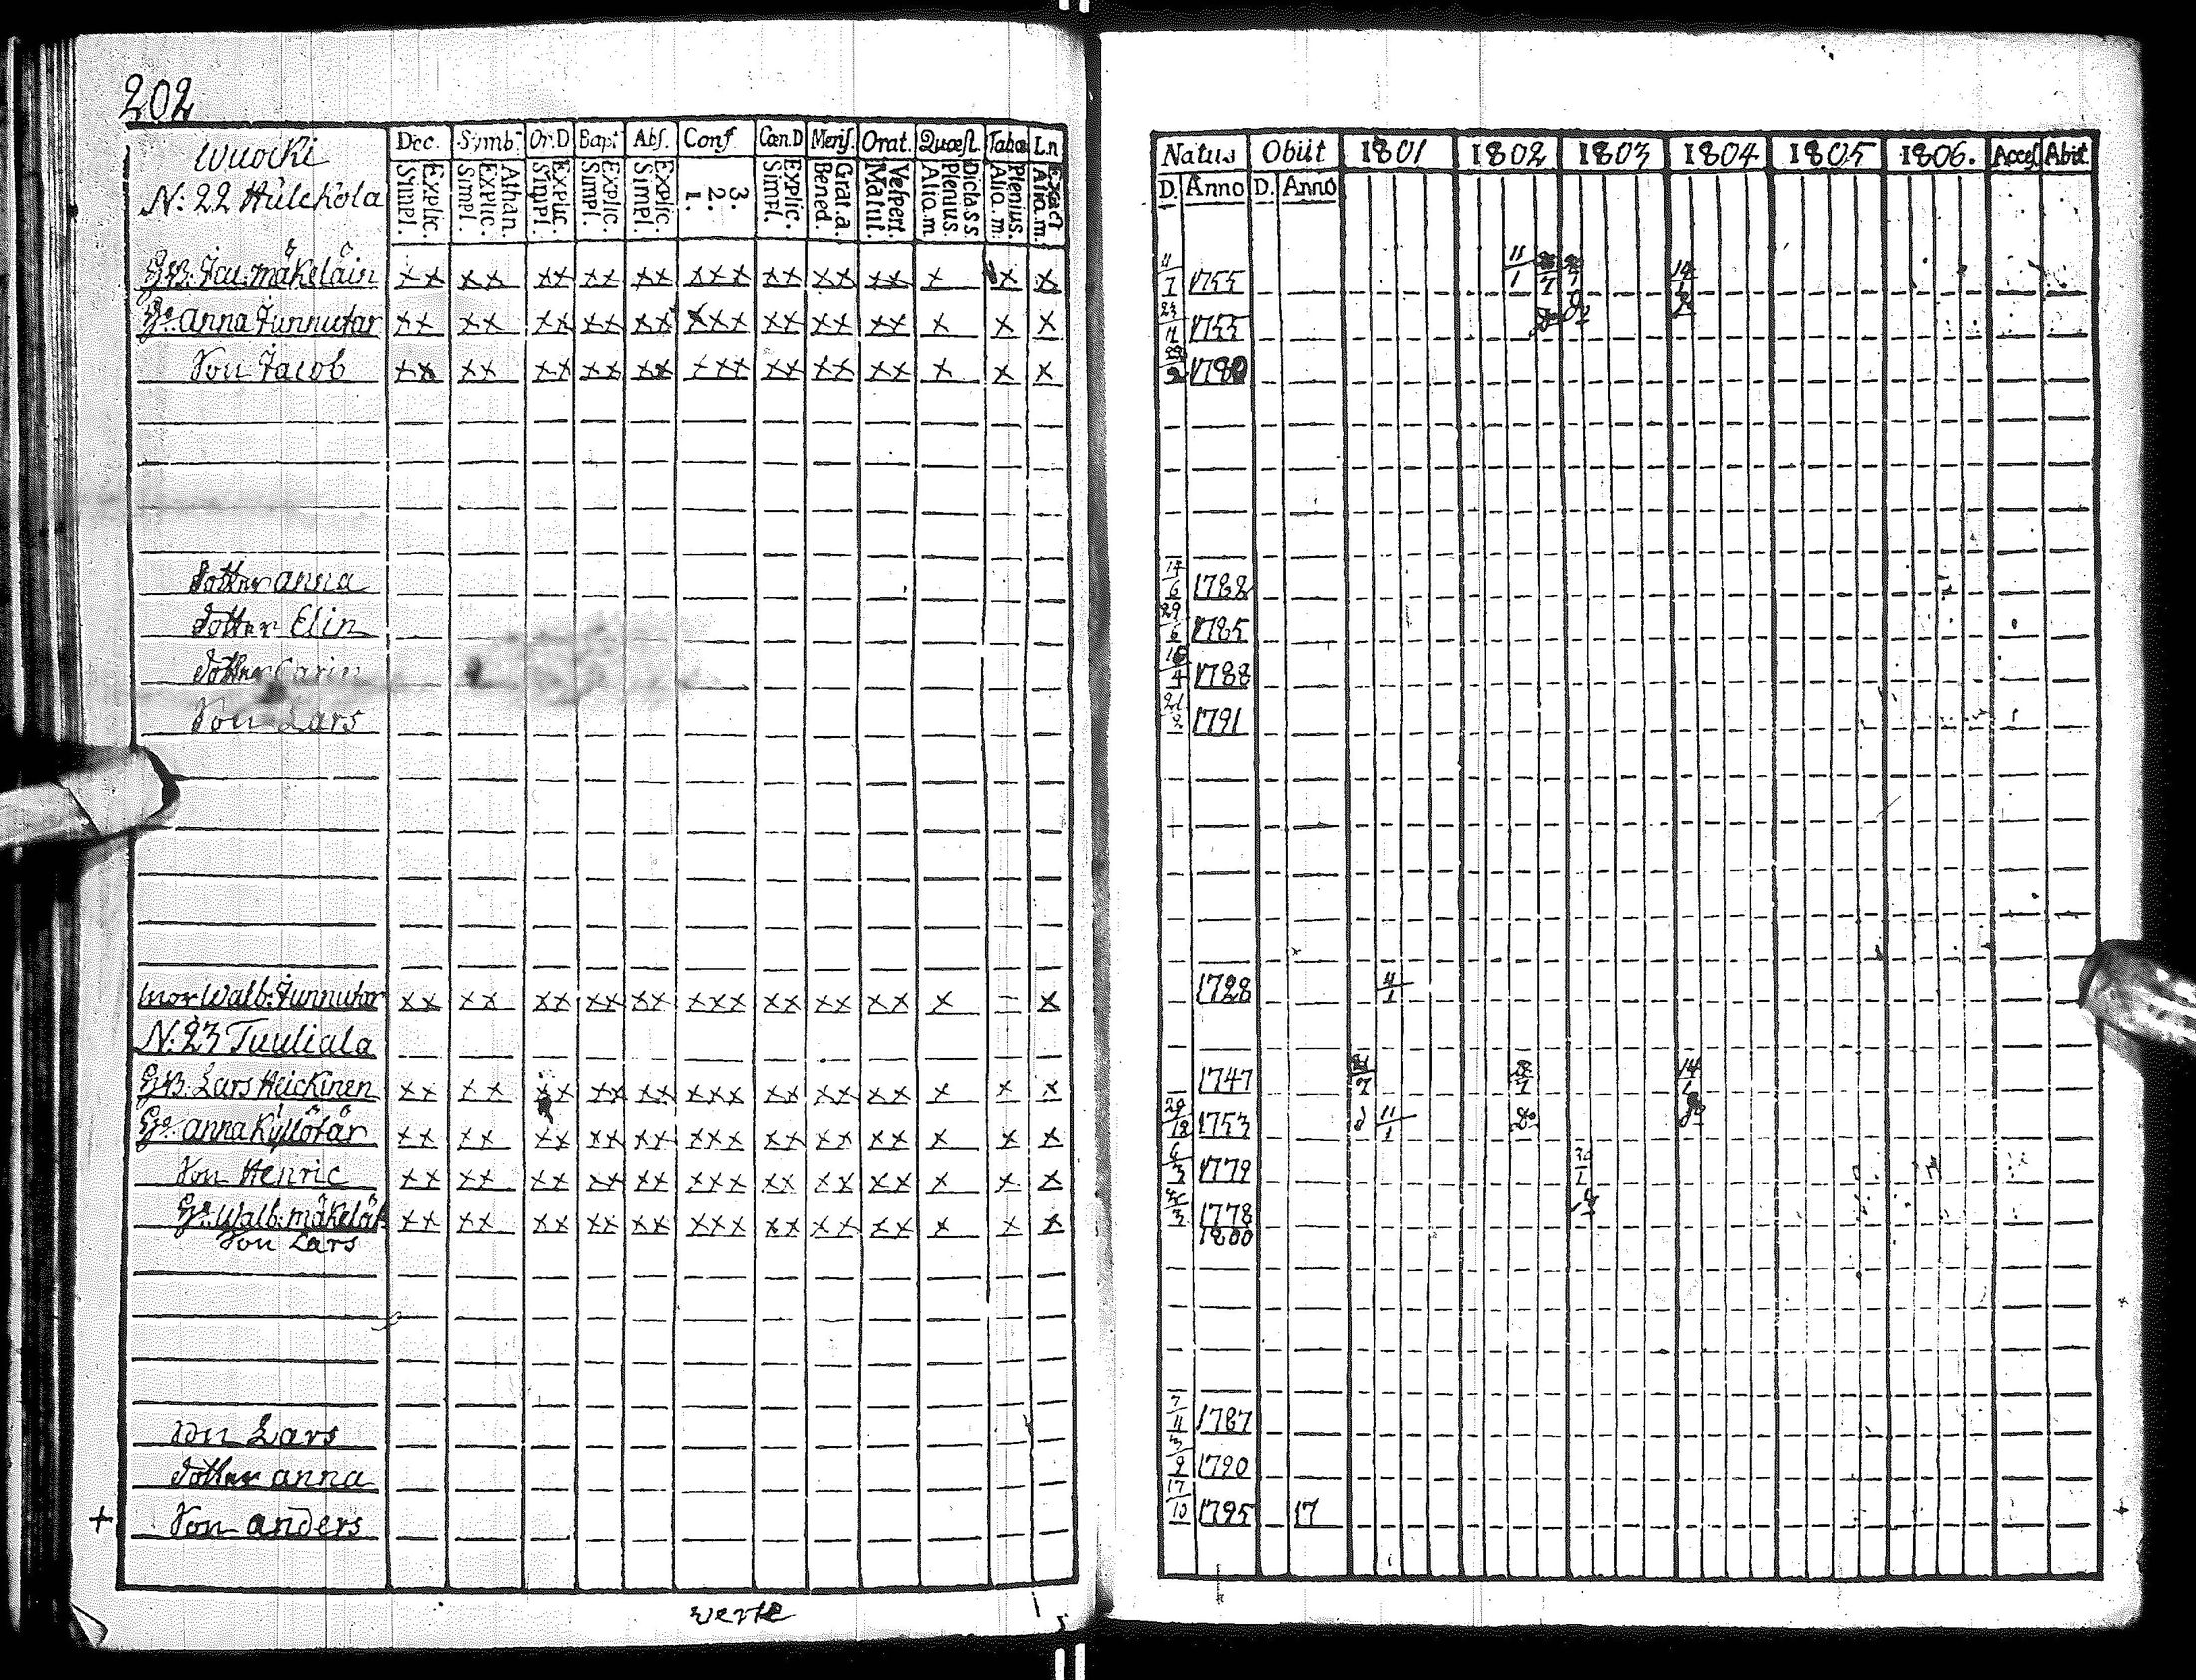 202
Wuocki
N: 22 Hülckola
Dec. Symb. Or.D Bapt Abs. Conf Cœn.D Mens. Orat. Quæst. Tabœ L.n
Explic. Simpl. Athan. Explic. Simpl. Explic. Simpl. Explic. Simpl. Explic. Simpl. 3. 2. 1. Explic. Simpl. Grat. a. Bened. Vespert. Matut. Dicla.s s. Plenius Alio.m Plenius. Alio.m. Exact Alia.m.
Natus Obiit 1801 1802 1803 1804 1805 1806. Acces Abit
D. Anno D. Anno
GB. Jac: mäkeläin xx xx xx xx xx xxx xx xx xx x x x 11/7 1755 11/1
Ga. anna Junnutar xx xx xx xx xx xxx xx xx xx x x x 23/11 1755
Son Jacob xx xx xx xx xx xxx xx xx xx x x x 1780
Dotter anna 17/6 1782
Dotter Elin 29/6 1785
Dotter Carin 4 1788
Son Lars 1791
mor Walb: Junnutar xx xx xx xx xx xxx xx xx xx x – x 1728 11/1
N: 23 Tuuliala
GB. Lars Heickinen xx xx xx xx xx xxx xx xx xx x x x 1747 14
Ga. anna Kyllötär xx xx xx xx xx xxx xx xx xx x x x 29/12 1753 11/1
Son Henric xx xx xx xx xx xxx xx xx xx x x x 6/3 1779
Ga. Walb: mäkelät xx xx xx xx xx xxx xx xx xx x x x 1778
Son Lars 1800
Son Lars 7/11 1787
Dotter anna 3/9 1790
+ Son anders 17/10 1795 17
verte